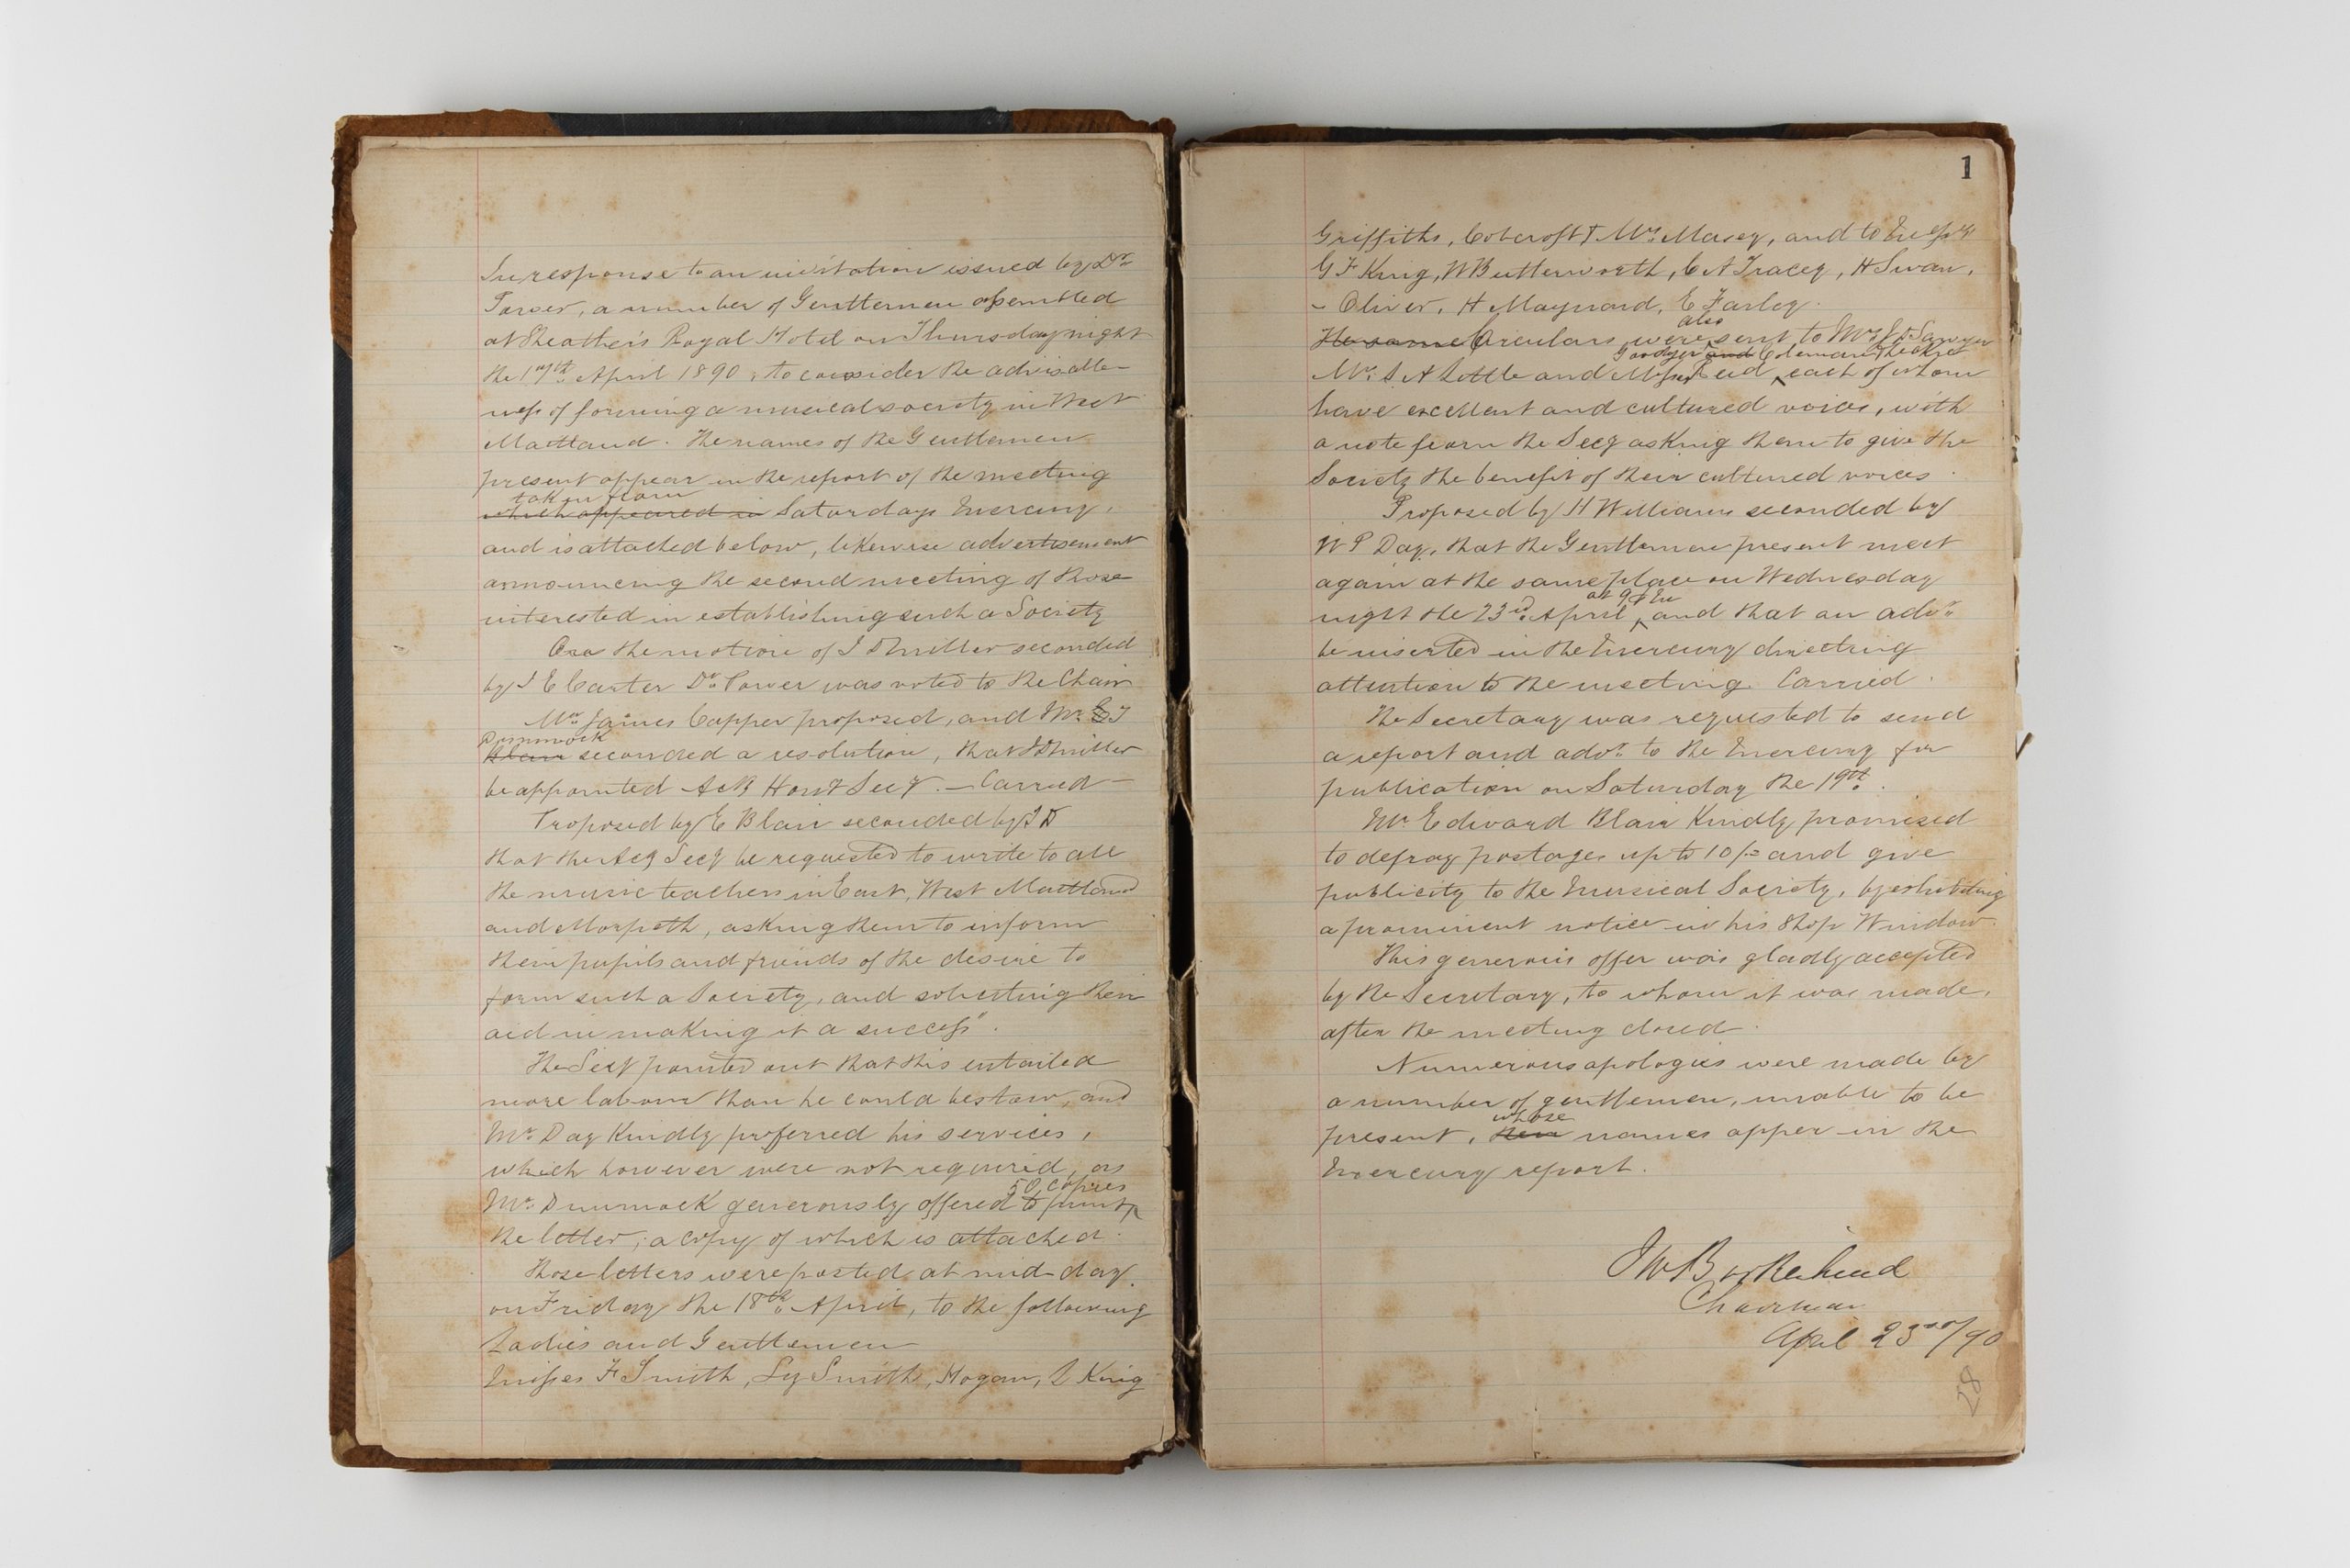 In response to an invitation issued by Dr.
Power, a number of Gentlemen assembled
at Sheather's Royal Hotel on Thursday night
the 17th April 1890, to consider the advisable-
ness of forming a musical society in West
Maitland. The names of the Gentlemen
present appear in the report of the meeting
taken from
which appeared in Saturdays Mercury,
and is attached below, likewise advertisement
announcing the second meeting of those
interested in establishing such a Society
On the motion of J D Miller seconded
by J E Carter Dr. Power was voted to the Chair
Mr. James Capper proposed, and Mr. T
Dimmock
Blair seconded a resolution, that J D Miller
be appointed Actg Hon Secy. — Carried —
Proposed by E Blair seconded by J D
that the Actg Secy be requested to write to all
the music teachers in East, West Maitland
and Morpeth, asking them to inform
their pupils and friends of the desire to
form such a Society, and soliciting their
aid in making it a success".
The Secy pointed out that this entailed
more labour than he could bestow, and
Mr. Day Kindly proferred his services,
which however were not required, as
50 copies
Mr. Dimmock generously offered to print
the letter, a copy of which is attached.
Those letters were posted at mid-day
on Friday the 18th April, to the following
Ladies and Gentlemen
Misses F Smith, Smith, Hogan, King
1
Griffiths, Cobcroft & Mrs. Masey, and to Messrs
G F King, W Butterworth, C A Tracey, H Swan,
- Oliver, H Maynard, E Farley.
also
The same Circulars were sent to Mrs Sawyer
Goodyer and Coleman
Mr. S A Little and Misses Reid each of whom
have excellent and cultured voices, with
a note from the Secy asking them to give the
Society the benefit of their cultured voices.
Proposed by H Williams seconded by
W P Day, that the Gentlemen present meet
again at the same place on Wednesday
at 9 PM
night the 23rd April, and that an advt.
be inserted in the Mercury directing
attention to the meeting. Carried.
The Secretary was requested to send
a report and advt. to the Mercury for
publication on Saturday the 19th.
Mr. Edward Blair Kindly promised
to defray postages up to 10/- and give
publicity to the Musical Society, by exhibiting
a prominent notice in his shop Window.
This generous offer was gladly accepted
by the Secretary, to whom it was made,
after the meeting closed.
Numerous apologies were made by
a number of gentlemen, unable to be
whose
present, their names apper in the
Mercury report.
Chairman
April 23rd/90
28